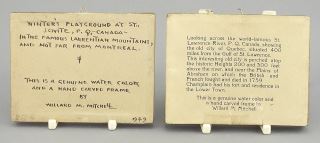 WINTER'S PLAYGROUND AT ST.
IGNITE, P.Q. CANADA -
IN THE FAMOUS LAURENTIAN MOUNTAINS,
AND NOT FAR FROM MONTREAL.
THIS IS A GENUINE WATER COLOR
AND A HAND CARVED FRAME
BY
WILLARD M. MITCHELL
Looking across the world-famous St.
Lawrence River, P. Q. Canada, showing
the old city of Quebec, situated 400
miles from the Gulf of St. Lawrence.
This interesting old city is perched atop
the historic Heights 200 and 300 feet
above the river, and near the Plains of
Abraham on which the British and
French fought and died in 1759.
Champlain had his fort and residence in
the Lower Town.
This is a genuine water color and
a hand carved frame by
Willard M. Mitchell